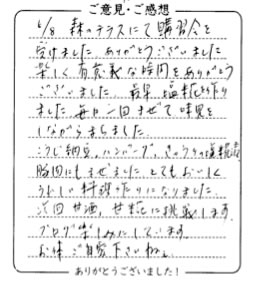 ご意見・ご感想
6/8 森のテラスにて講習会を
受けました ありがとうございました
楽しく有意義な時間をありがとう
ございました。早早、塩糀を作り
ました 毎日一回まぜて味見を
しながらまちました。
こうじ納豆、ハンバーグ、きゅうりの塩糀漬
豚肉にもまぜました とてもおいしく
うれしい料理作りになりました。
次回 甘酒、甘糀に挑戦します。
ブログ楽しみにしています。
お体ご自愛下さいね。
ありがとうございました!